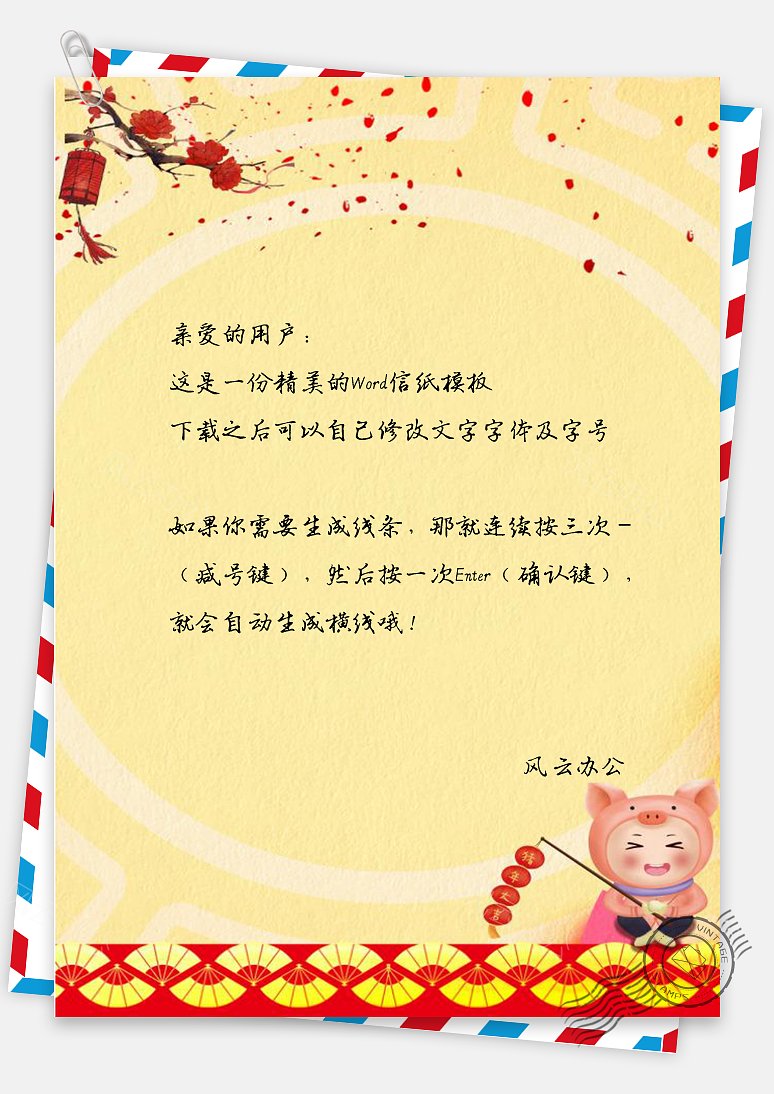 亲爱的用户：
这是一份精美的Word信纸模板
下载之后可以自己修改文字字体及字号
如果你需要生成线条，那就连续按三次－
（减号键），然后按一次Enter（确认键），
就会自动生成横线哦！
风云办公
猪年大吉
VINTAGE
AMPS